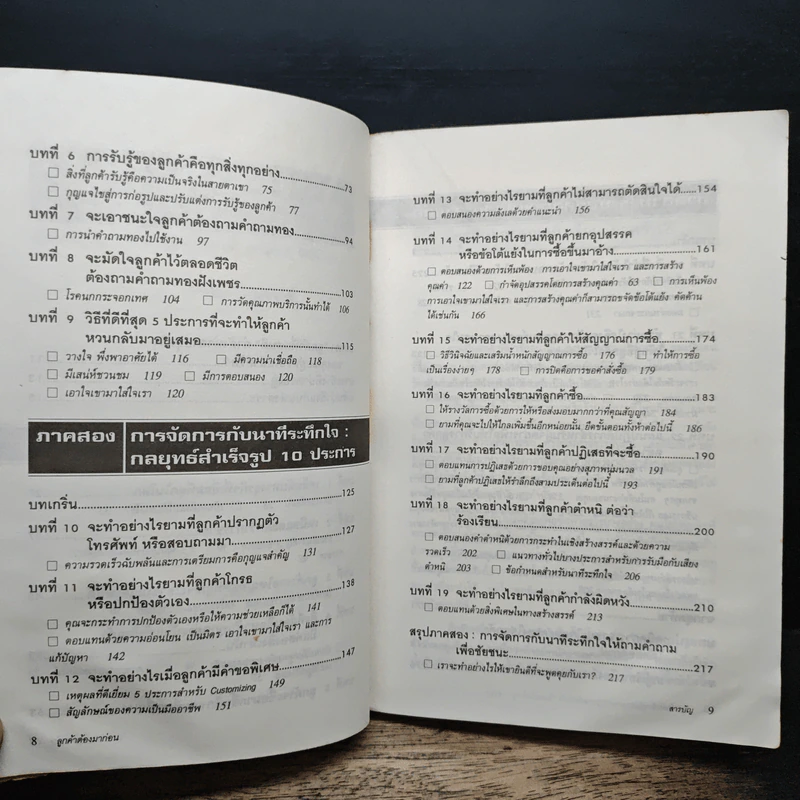 บทที่ 6 การรับรู้ของลูกค้าคือทุกสิ่งทุกอย่าง..........73
☐ สิ่งที่ลูกค้ารับรู้คือความเป็นจริงในสายตาเขา 75
☐ กุญแจไขสู่การก่อรูปและปรับแต่งการรับรู้ของลูกค้า 77
บทที่ 7 จะเอาชนะใจลูกค้าต้องถามคำถามทอง..........94
☐ การนำคำถามทองไปใช้งาน 97
บทที่ 8 จะมัดใจลูกค้าไว้ตลอดชีวิต
ต้องถามคำถามฝังเพชร..........103
☐ โรคนกกระจอกเทศ 104 ☐ การวัดคุณภาพบริการนั้นทำได้ 106
บทที่ 9 วิธีที่ดีที่สุด 5 ประการที่จะทำให้ลูกค้า
หวนกลับมาอยู่เสมอ..........115
☐ วางใจ พึ่งพาอาศัยได้ 116 ☐ มีความน่าเชื่อถือ 118
☐ มีเสน่ห์ชวนชม 119 ☐ มีการตอบสนอง 120
☐ เอาใจเขามาใส่ใจเรา 120
ภาคสอง การจัดการกับนาทีระทึกใจ :
กลยุทธ์สำเร็จรูป 10 ประการ
บทเกริ่น..........125
บทที่ 10 จะทำอย่างไรยามที่ลูกค้าปรากฏตัว
โทรศัพท์ หรือสอบถามมา..........127
☐ ความรวดเร็วฉับพลันและการเตรียมการคือกุญแจสำคัญ 131
บทที่ 11 จะทำอย่างไรยามที่ลูกค้าโกรธ
หรือปกป้องตัวเอง..........138
☐ คุณจะกระทำการปกป้องตัวเองหรือให้ความช่วยเหลือก็ได้ 141
☐ ตอบแทนด้วยความอ่อนโยน เป็นมิตร เอาใจเขามาใส่ใจเรา และการ
แก้ปัญหา 142
บทที่ 12 จะทำอย่างไรเมื่อลูกค้ามีคำขอพิเศษ..........147
☐ เหตุผลที่ดีเยี่ยม 5 ประการสำหรับ Customizing 149
☐ สัญลักษณ์ของความเป็นมืออาชีพ 151
8 ลูกค้าต้องมาก่อน
บทที่ 13 จะทำอย่างไรยามที่ลูกค้าไม่สามารถตัดสินใจได้..........154
☐ ตอบสนองความลังเลด้วยคำแนะนำ 156
บทที่ 14 จะทำอย่างไรยามที่ลูกค้ายกอุปสรรค
หรือข้อโต้แย้งในการซื้อขึ้นมาอ้าง..........161
☐ ตอบสนองด้วยการเห็นพ้อง การเอาใจเขามาใส่ใจเรา และการสร้าง
คุณค่า 122 ☐ กำจัดอุปสรรคโดยการสร้างคุณค่า 63 ☐ การเห็นพ้อง
การเอาใจเขามาใส่ใจเรา และการสร้างคุณค่าก็สามารถขจัดข้อโต้แย้ง คัดค้าน
ได้เช่นกัน 166
บทที่ 15 จะทำอย่างไรยามที่ลูกค้าให้สัญญาณการซื้อ..........174
☐ วิธีวินิจฉัยและเสริมน้ำหนักสัญญาณการซื้อ 176 ☐ ทำให้การซื้อ
เป็นเรื่องง่ายๆ 178 ☐ การปิดคือการขอคำสั่งซื้อ 179
บทที่ 16 จะทำอย่างไรยามที่ลูกค้าซื้อ..........183
☐ ให้รางวัลการซื้อด้วยการให้หรือส่งมอบมากกว่าที่คุณสัญญา 184
☐ ยามที่คุณจะไปให้ไกลเพิ่มขึ้นอีกหน่อยนั้น ยึดขั้นตอนทั้งห้าต่อไปนี้ 186
บทที่ 17 จะทำอย่างไรยามที่ลูกค้าปฏิเสธที่จะซื้อ..........190
☐ ตอบแทนการปฏิเสธด้วยการขอบคุณอย่างสุภาพนุ่มนวล 191
☐ ยามที่ลูกค้าปฏิเสธให้รำลึกถึงสามประเด็นต่อไปนี้ 193
บทที่ 18 จะทำอย่างไรยามที่ลูกค้าตำหนิ ต่อว่า
ร้องเรียน..........200
☐ ตอบสนองคำตำหนิด้วยการกระทำในเชิงสร้างสรรค์และด้วยความ
รวดเร็ว 202 ☐ แนวทางทั่วไปบางประการสำหรับการรับมือกับเสียง
ตำหนิ 203 ☐ ข้อกำหนดสำหรับนาทีระทึกใจ 206
บทที่ 19 จะทำอย่างไรยามที่ลูกค้ากำลังผิดหวัง..........210
☐ ตอบแทนด้วยสิ่งพิเศษในทางสร้างสรรค์ 213
สรุปภาคสอง : การจัดการกับนาทีระทึกใจให้ถามคำถาม
เพื่อชัยชนะ..........217
☐ เราจะทำอย่างไรให้เขายินดีที่จะพูดคุยกับเรา? 217
สารบัญ 9